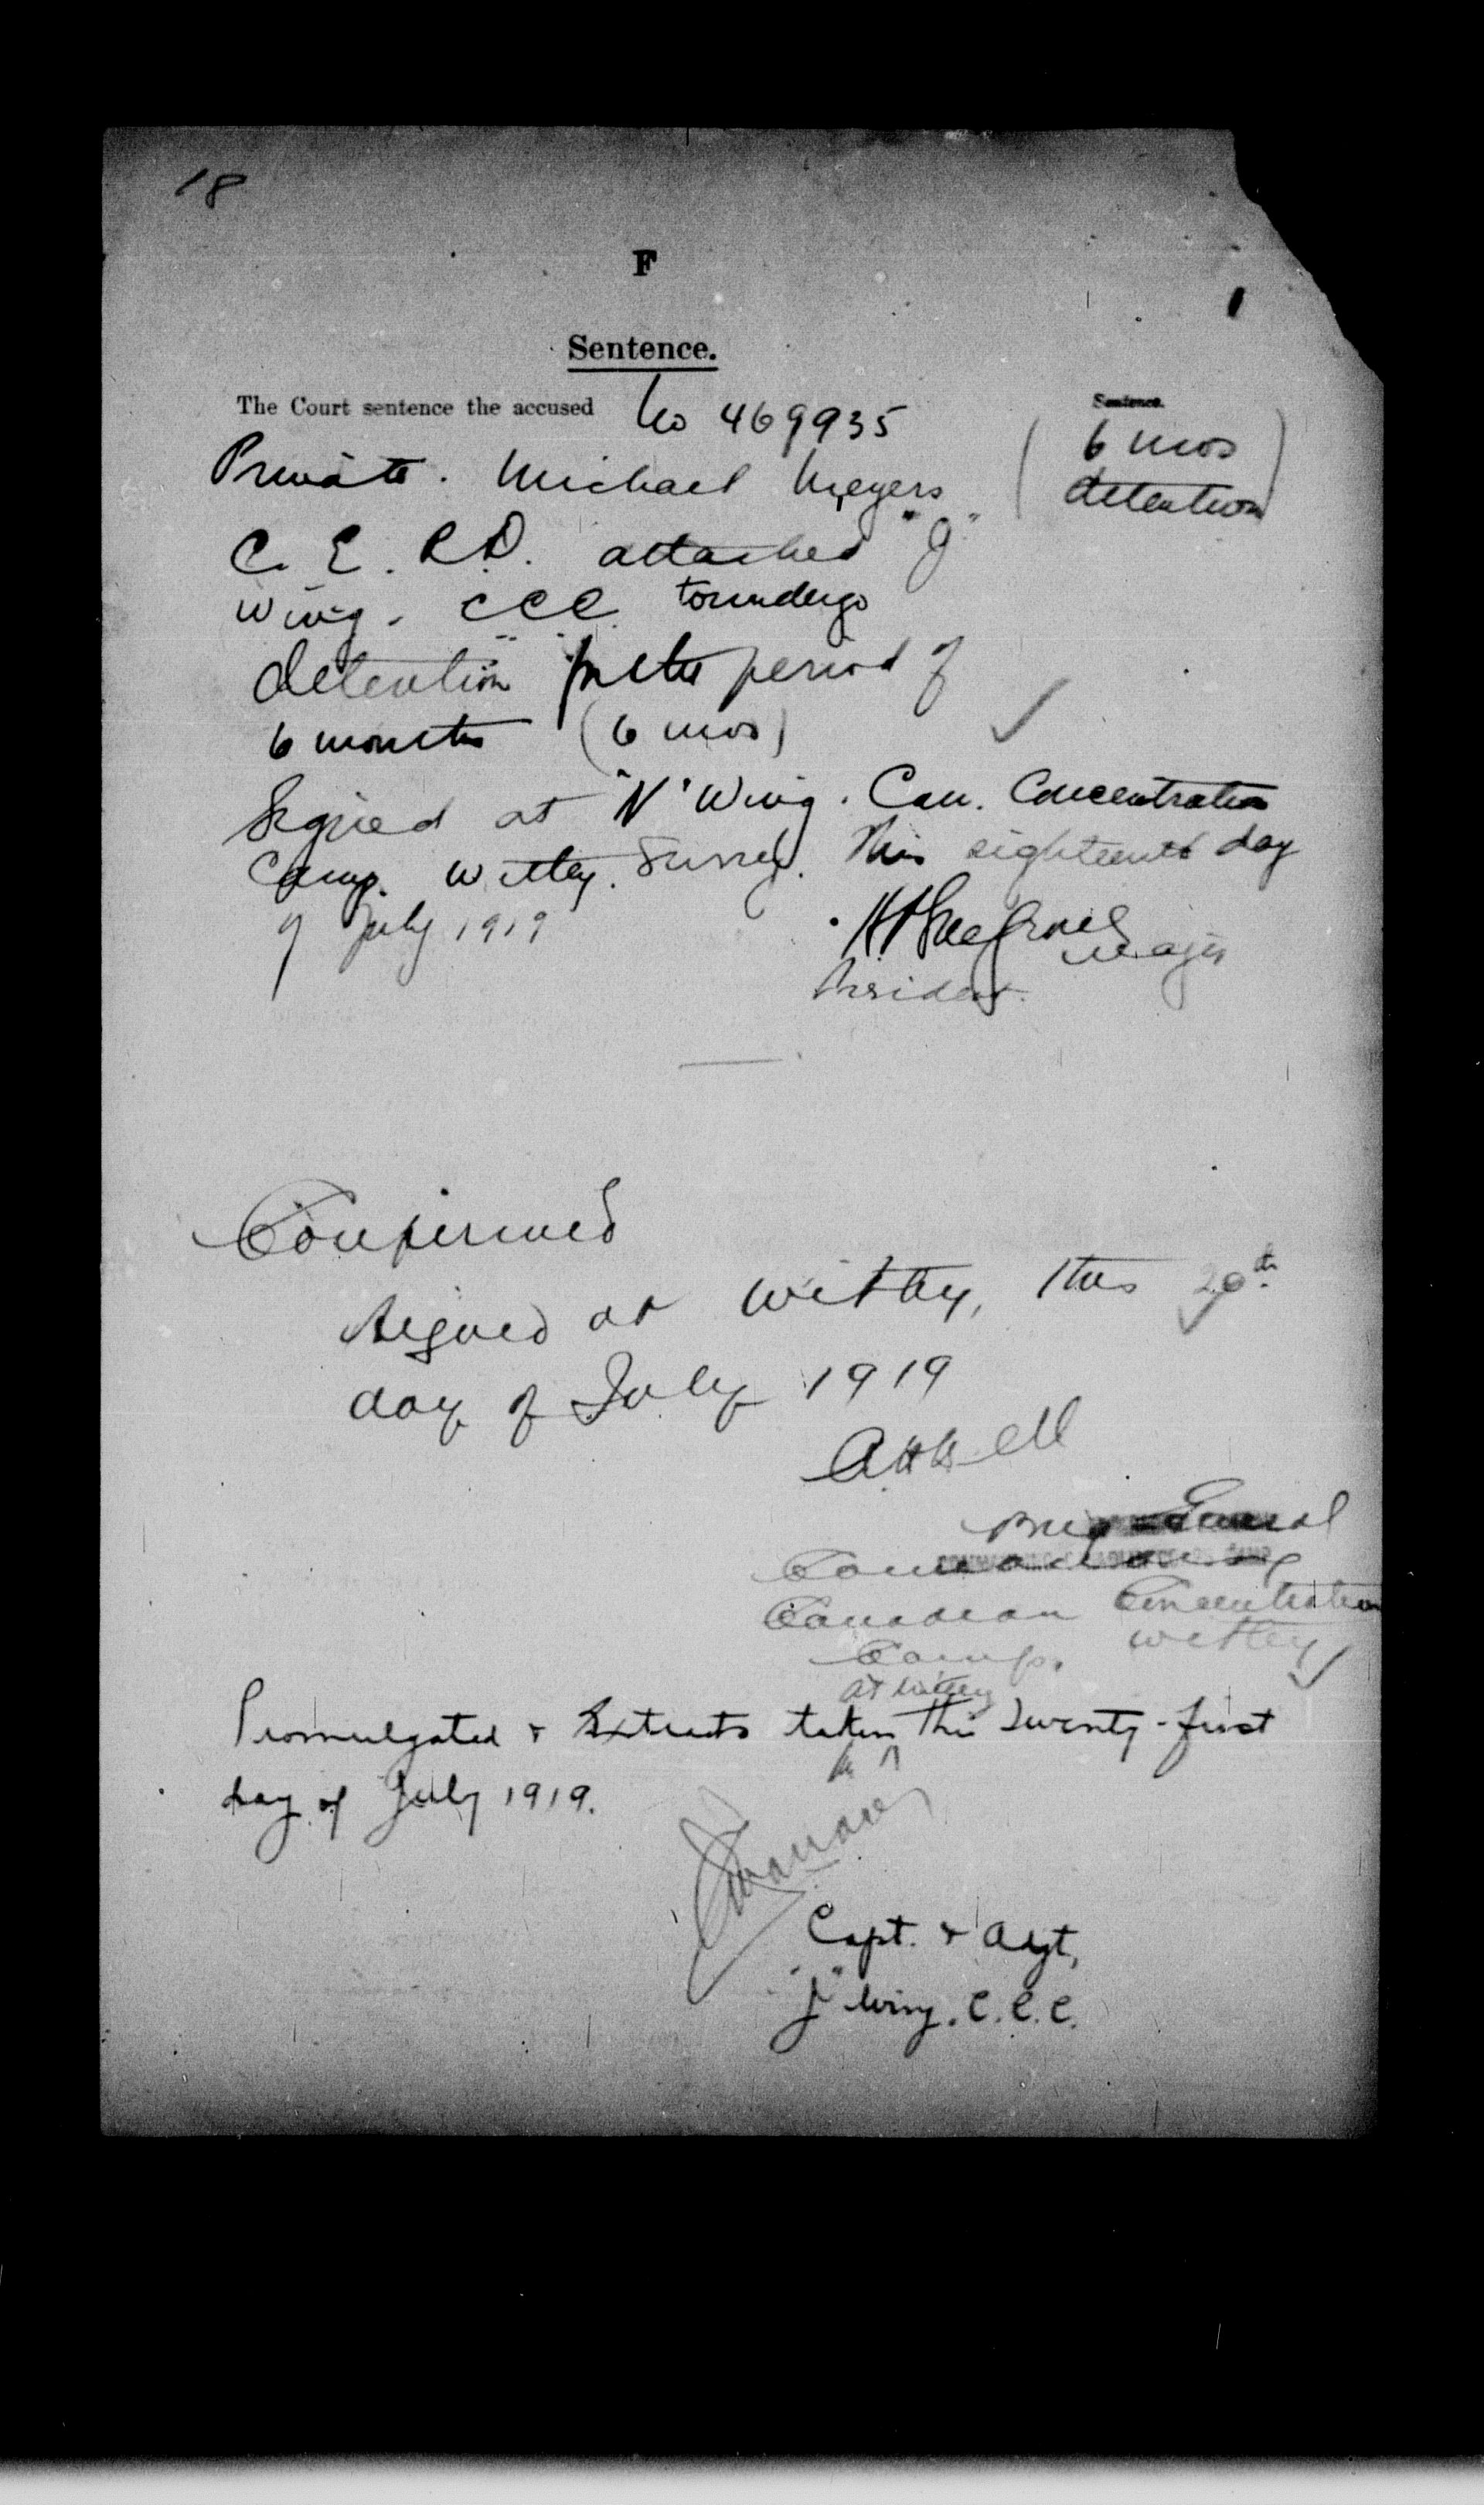 18
F
Sentence.
The Court sentence the accused No 469935
Sentence.
6 mos
detention
Private. Michael Meyers
C. E. R.D. attached "J"
Wing. CCC. to undergo
detention for the period of
6 months (6 mos)
Signed at "N" Wing. Can. Concentration
Camp. Witley. Surrey. This eighteenth day
of July 1919
Major
President.
Confirmed
Signed at Witley, this 20th
day of July 1919
Brig General
Commanding
Canadian Concentration
Camp. Witley
at Witley
Promulgated & Extracts taken this Twenty-first
day of July 1919.
Capt. & Adjt,
"J" Wing. C.C.C.